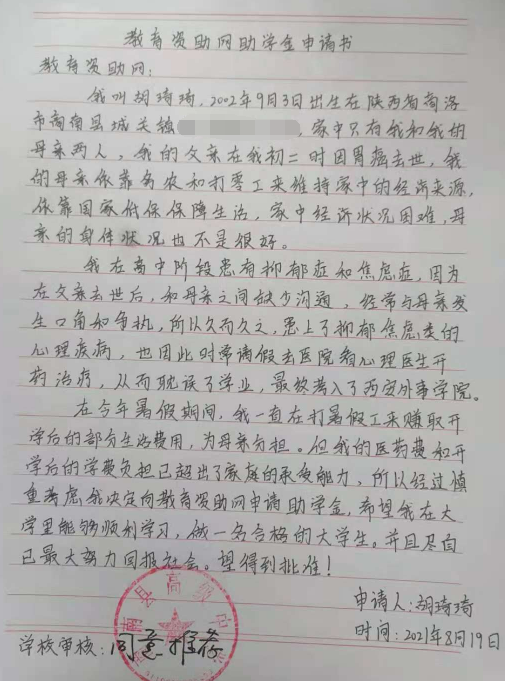 教育资助网助学金申请书
教育资助网:
我叫胡琦琦,2002年9月3日出生在陕西省商洛
市商南县城关镇,家中只有我和我的
母亲两人,我的父亲在我初二时因胃癌去世,我
的母亲依靠务农和打零工来维持家中的经济来源,
依靠国家低保保障生活,家中经济状况困难,母
亲的身体状况也不是很好。
我在高中阶段患有抑郁症和焦虑症,因为
在父亲去世后,和母亲之间缺少沟通,经常与母亲发
生口角和争执,所以久而久之,患上了抑郁焦虑类的
心理疾病,也因此时常请假去医院看心理医生开
药治疗,从而耽误了学业,最终考入了西安外事学院。
在今年暑假期间,我一直在打暑假工来赚取开
学后的部分生活费用,为母亲分担。但我的医药费和开
学后的学费负担已超出了家庭的承受能力,所以经过慎
重考虑我决定向教育资助网申请助学金,希望我在大
学里能够顺利学习,做一名合格的大学生。并且尽自
己最大努力回报社会。望得到批准!
申请人:胡琦琦
时间:2021年8月19日
学校审核:同意推荐
南县高级中